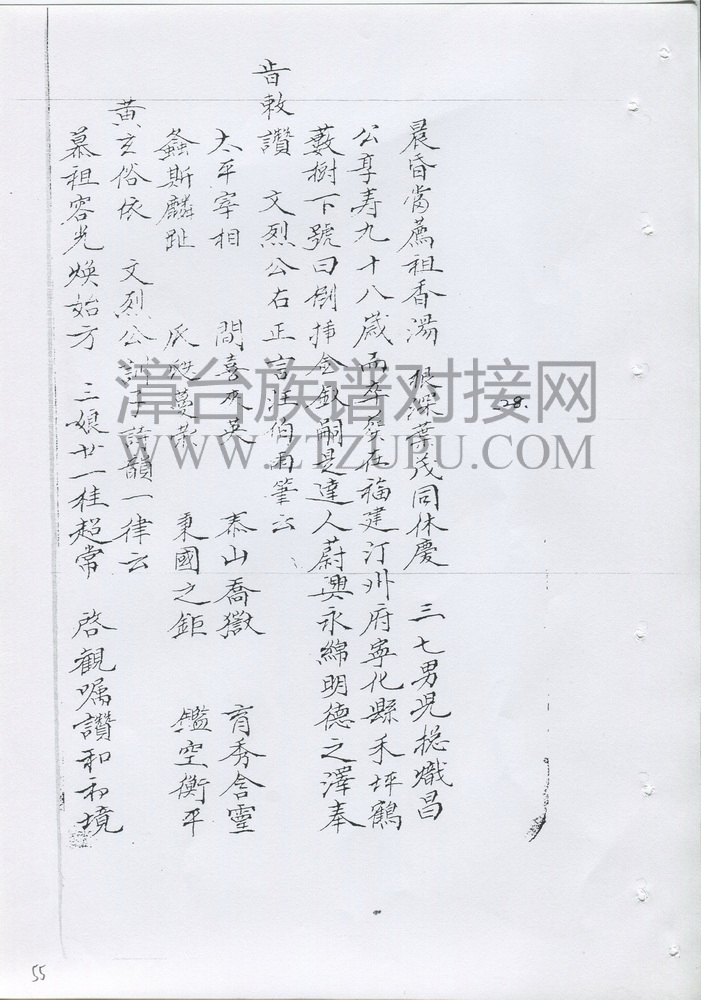 晨昏當薦祖香湯 根深葉茂同休慶 三七男児總熾昌
公享寿九十八歲而卒 在福建汀州府寧化縣禾坪鶴
藪樹下號曰倒揷金釵嗣是達人蔚興永綿明德之澤奉
旨敕讚 文烈公右正言汪伯雨筆云
太平宰相 間喜來英 泰山喬嶽 育秀含靈
螽斯麟趾 瓜瓞蔓 秉國之鉅 鑑空衡平
黄玄俗依 文烈公 詩韻一律云
慕祖容光煥始方 三娘廿一桂超常 啓觀嘱讚和初境
28.
55
漳台族谱对接网
WWW.ZTZUPU.COM